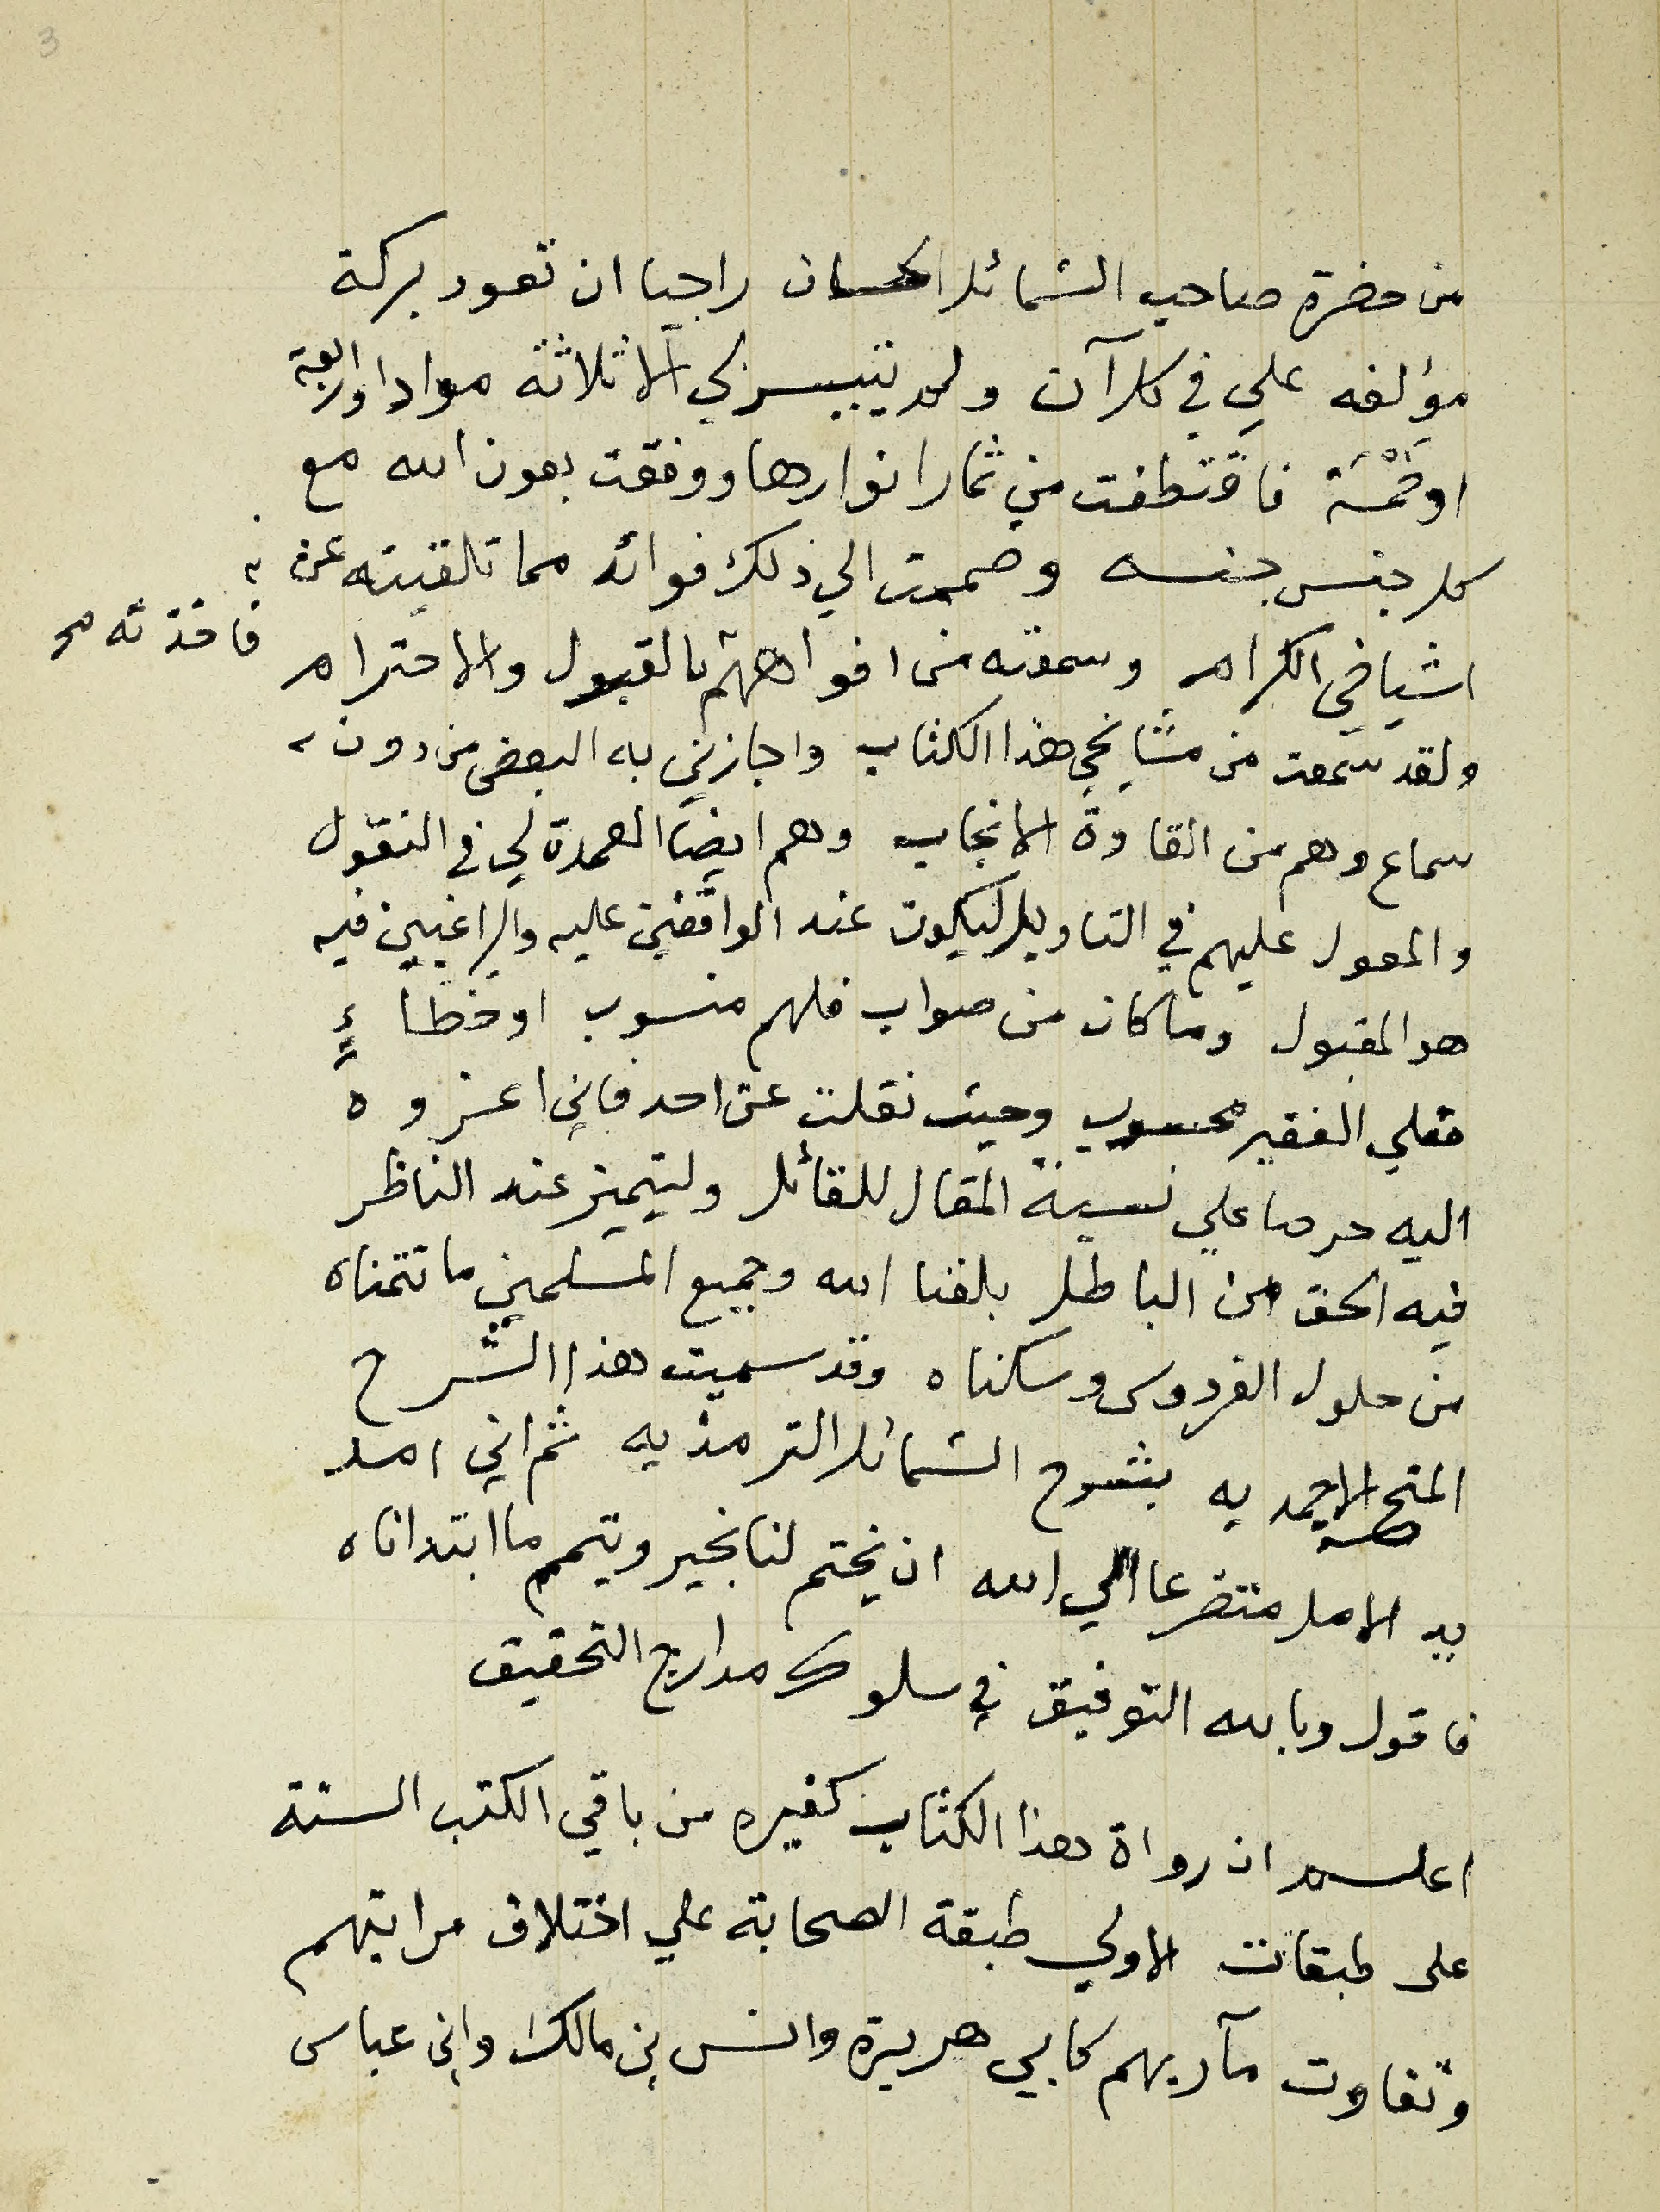 3
من حضرة صاحب الشمائل الحسان راجيا ان تعود بركة
مؤلفه علي في كل آن ولم يتيسر لي الا ثلاثة مواد او اربعة
او خمسة فاقتطفت من ثمار انوارها ووفقت بعون الله مع
كل جنس جنسه وضممت الي ذلك فوائد مما تلقيته عن
اشياخي الكرام وسمعته من افواههم بالقبول والاحترام
فاخذته صح
ولقد سمعت من مشايخي هذا الكتاب واجازني به البعض من دون
سماع وهم من القادة الانجاب وهم ايضا العمدة لي في النقول
والمعول عليهم في التاويل ليكون عند الواقفين عليه والراغبين فيه
هو المقبول وما كان من صواب فلهم منسوب او خطاءٍ
فعلي الفقير محسوب وحيث نقلت عن احد فاني اعزوه
اليه حرصا علي نسبة المقال للقائل وليتميز عند الناظر
فيه الحق من الباطل بلغنا الله وجميع المسلمين ما نتمناه
من حلول الفردوس وسكناه وقد سميت هذا الشرح
المنح الاحمديه بشرح الشمائل الترمذيه ثم اني امد
يد الامل متضرعا الي الله ان يختم لنا بخير ويتمم ما ابتداناه
فاقول وبالله التوفيق في سلوك مدارج التحقيق
اعلم ان رواة هذا الكتاب كغيره من باقي الكتب الستة
على طبقات الاولي طبقة الصحابة علي اختلاف مراتبهم
وتفاوت مآربهم كابي هريرة وانس بن مالك وابن عباس